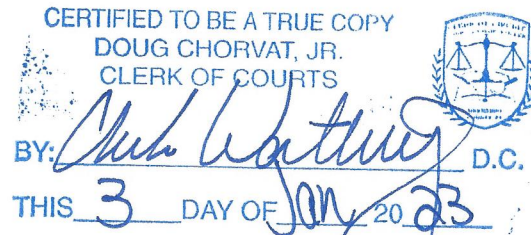 CERTIFIED TO BE A TRUE COPY
DOUG CHORVAT, JR.
CLERK OF COURTS
BY: D.C.
THIS 3 DAY OF Jan 20 23